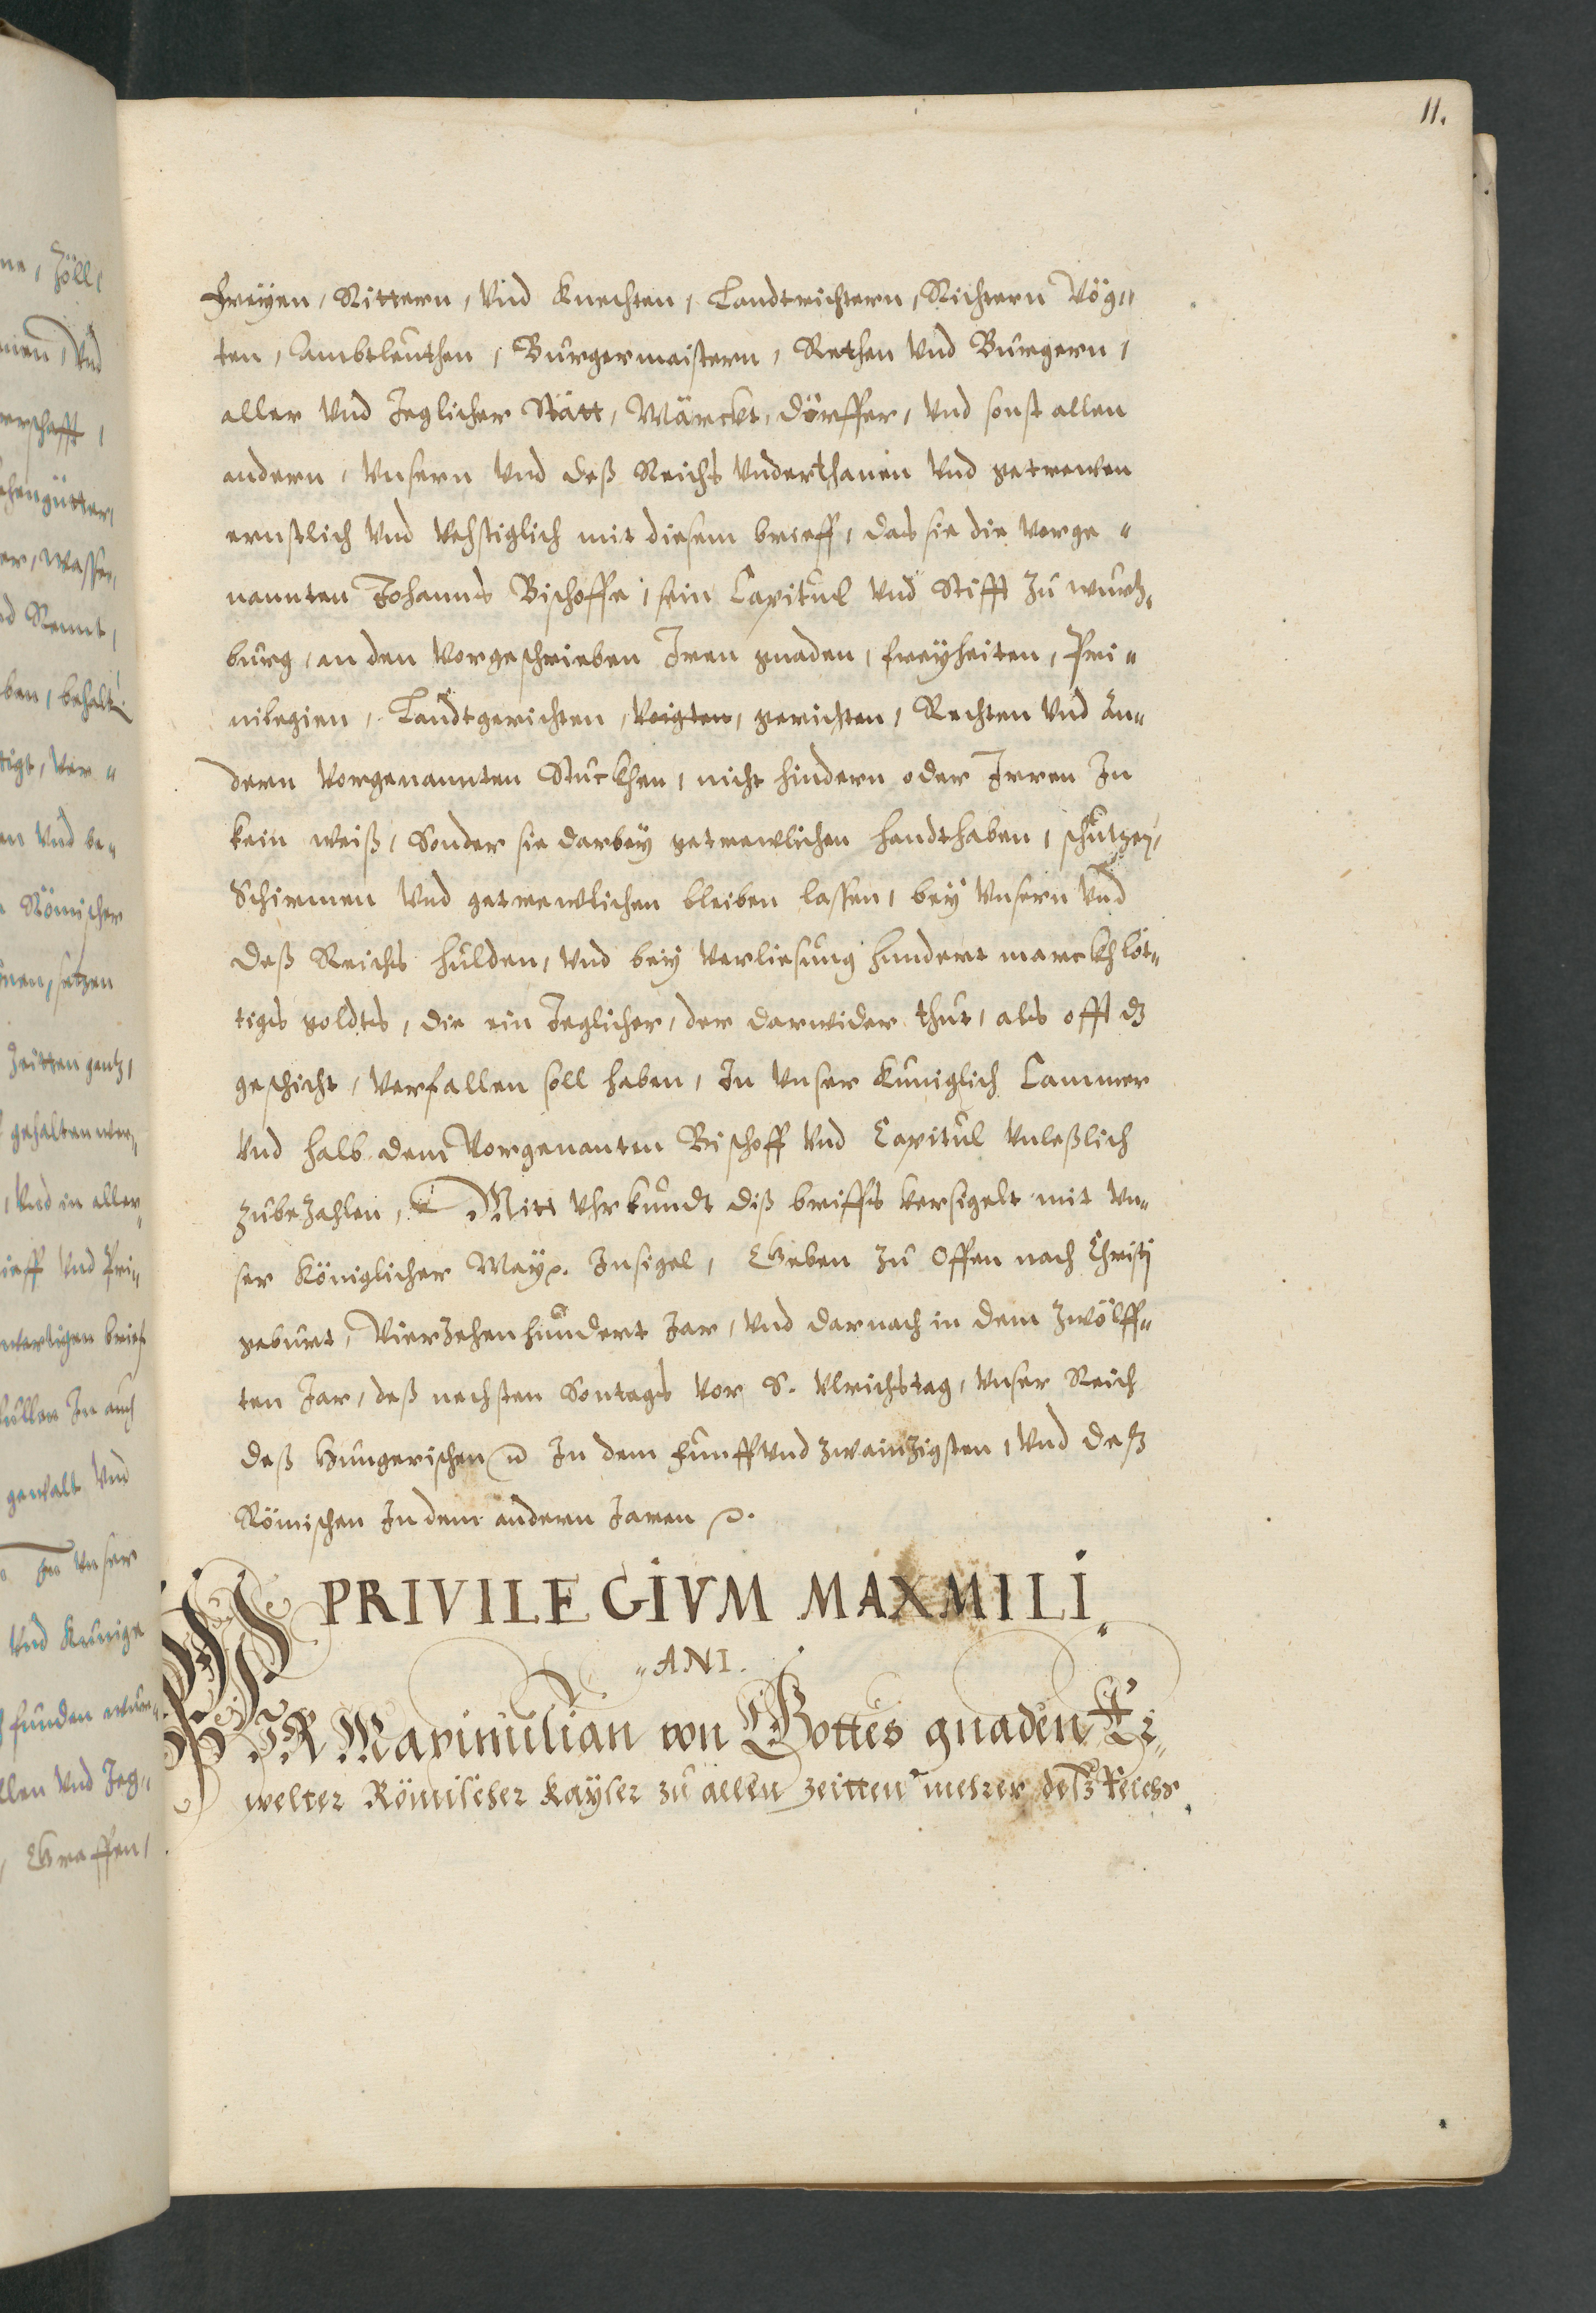 11.
Freÿen, Rittern, Vnd Knechten, Landtrichtern, Richtern Vög„
ten, Ambtleuthen, Burgermaistern, Rethen Vnd Burgern,
aller Vnd Jeglicher Stätt, Märckt, Dörffer, Vnd sonst allen
andern, Vnsern Vnd deß Reichs Vnderthanen Vnd getrewen
ernstlich Vnd Vehstiglich mit diesem brieff, das sie die Vorge„
nannten Johanns Bischoffe, sein Capitul Vnd Stifft zu wurtz„
burg, an den Vorgeschrieben Iren gnaden, freyheiten, Pri„
uilegien, Landtgerichten, Voigten, gerichten, Rechten Vnd An„
dern Vorgenannten Stuckhen, nicht hindern oder Irren In
kein weiß, Sonder sie darbey getrewlichen handthaben, schutzen,
Schirmen Vnd getrewlichen bleiben lassen, beÿ Vnsern Vnd
deß Reichs hulden, Vnd beÿ Verliesung hundert marckh löt„
tigs goldts, die ein Jeglicher, der darwider thut, als offt dz
geschicht, Verfallen soll haben, In Vnser Kuniglich Cammer
Vnd halb dem Vorgenanten Bischoff Vnd Capitul Vnleßlich
zubezahlen, Mitt Vhrkundt diß brieffs Versigelt mit Vn„
ser Königlicher May. Insigel, Geben zu Offen nach Christj
geburt, Vierzehenhundert Jar, Vnd darnach in dem zwölff„
ten Jar, deß nechsten Sontags Vor S. Vlrichstag, Vnser Reich
deß Hungerischen In dem funffVnd zwainzigsten, Vnd deß
Römischen In dem andern Jaren
PRIVILEGIVM MAXMILI„
„ANI.
WIR Maximilian von Gottes gnaden Er„
welter Römischer Kaÿser zu allen zeitten mehrer deß Reichs